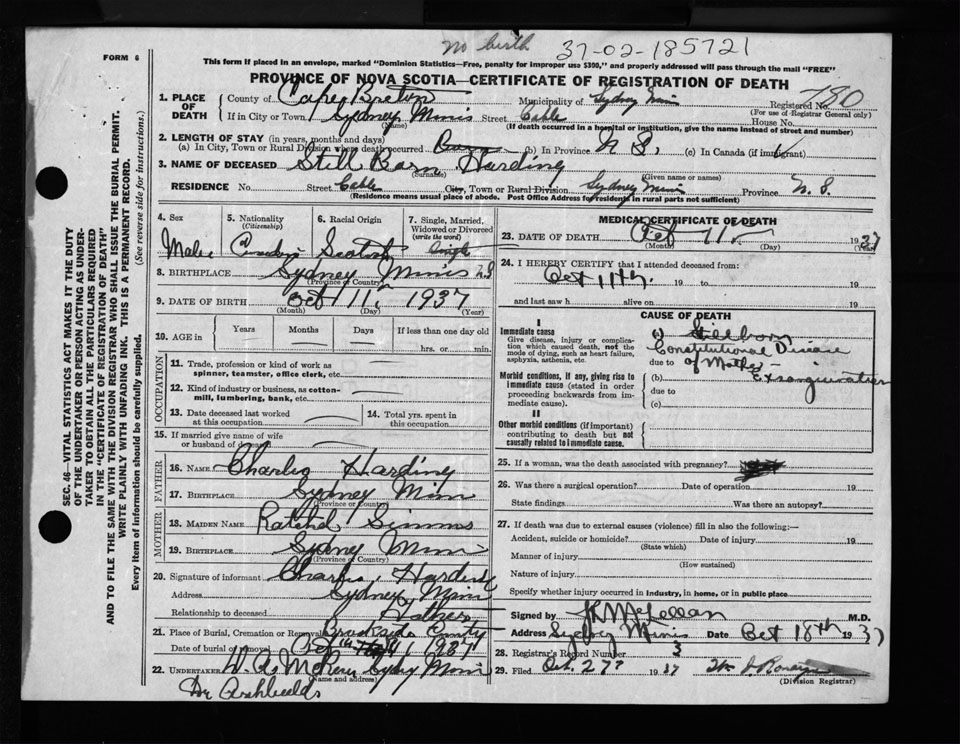 no birth 37-02-185721
FORM 6
This form if placed in an envelope, marked "Dominion Statistics—Free, penalty for improper use $300," and properly addressed will pass through the mail "FREE"
PROVINCE OF NOVA SCOTIA—CERTIFICATE OF REGISTRATION OF DEATH
1. PLACE OF DEATH
County of Cape Breton Municipality of Sydney Mines Registered No. 780
(For use of Registrar General only)
If in City or Town Sydney Mines Street Cable House No.
(Name)
(If death occurred in a hospital or institution, give the name instead of street and number)
2. LENGTH OF STAY (in years, months and days)
(a) In City, Town or Rural Division where death occurred Born (b) In Province N S. (c) In Canada (if immigrant)
3. NAME OF DECEASED Still Born Harding
(Surname) (Given name or names)
RESIDENCE No. Street Cable City, Town or Rural Division Sydney Mines Province N. S.
(Residence means usual place of abode. Post Office Address for residents in rural parts not sufficient)
4. Sex
Male
5. Nationality
(Citizenship)
6. Racial Origin
Scotch
7. Single, Married, Widowed or Divorced
(write the word)
Single
8. BIRTHPLACE Sydney Mines N.S
(Province or Country)
9. DATE OF BIRTH Oct 11 1937
(Month) (Day) (Year)
10. AGE in
Years Months Days If less than one day old
hrs. or min.
OCCUPATION
11. Trade, profession or kind of work as
spinner, teamster, office clerk, etc.
12. Kind of industry or business, as cotton-
mill, lumbering, bank, etc.
13. Date deceased last worked
at this occupation
14. Total yrs. spent in
this occupation
15. If married give name of wife
or husband of deceased
FATHER
16. NAME Charles Harding
17. BIRTHPLACE Sydney Mines
(Province or Country)
MOTHER
18. MAIDEN NAME Ratchel Simms
19. BIRTHPLACE Sydney Mines
(Province or Country)
20. Signature of informant Charles Harding
Address Sydney Mines
Relationship to deceased Father
21. Place of Burial, Cremation or Removal Brookside
Date of burial or removal Oct 1937
22. UNDERTAKER Sydney Mines
(Name and address)
MEDICAL CERTIFICATE OF DEATH
23. DATE OF DEATH Oct 11 1937
(Month) (Day) (Year)
24. I HEREBY CERTIFY that I attended deceased from:
Oct 11th. 19 to 19
and last saw h alive on 19
CAUSE OF DEATH
I
Immediate cause
Give disease, injury or complica-
tion which caused death, not the
mode of dying, such as heart failure,
asphyxia, asthenia, etc.
Stillborn
Constitutional Disease
due to of Mother -
Morbid conditions, if any, giving rise to
immediate cause (stated in order
proceeding backwards from im-
mediate cause).
(b) Exsanguination
due to
(c)
II
Other morbid conditions (if important)
contributing to death but not
causally related to immediate cause.
25. If a woman, was the death associated with pregnancy?
26. Was there a surgical operation? Date of operation 19
State findings Was there an autopsy?
27. If death was due to external causes (violence) fill in also the following:—
Accident, suicide or homicide? Date of injury 19
(State which)
Manner of injury
(How sustained)
Nature of injury
Specify whether injury occurred in industry, in home, or in public place
Signed by McLellan M.D.
Address Sydney Mines Date Oct 18th 1937
28. Registrar's Record Number 3
29. Filed Oct. 27 1937
(Division Registrar)
SEC. 46—VITAL STATISTICS ACT MAKES IT THE DUTY
OF THE UNDERTAKER OR PERSON ACTING AS UNDER-
TAKER TO OBTAIN ALL THE PARTICULARS REQUIRED
IN THE "CERTIFICATE OF REGISTRATION OF DEATH"
AND TO FILE THE SAME WITH THE DIVISION REGISTRAR WHO SHALL ISSUE THE BURIAL PERMIT.
WRITE PLAINLY WITH UNFADING INK. THIS IS A PERMANENT RECORD.
Every item of information should be carefully supplied. (See reverse side for instructions.)